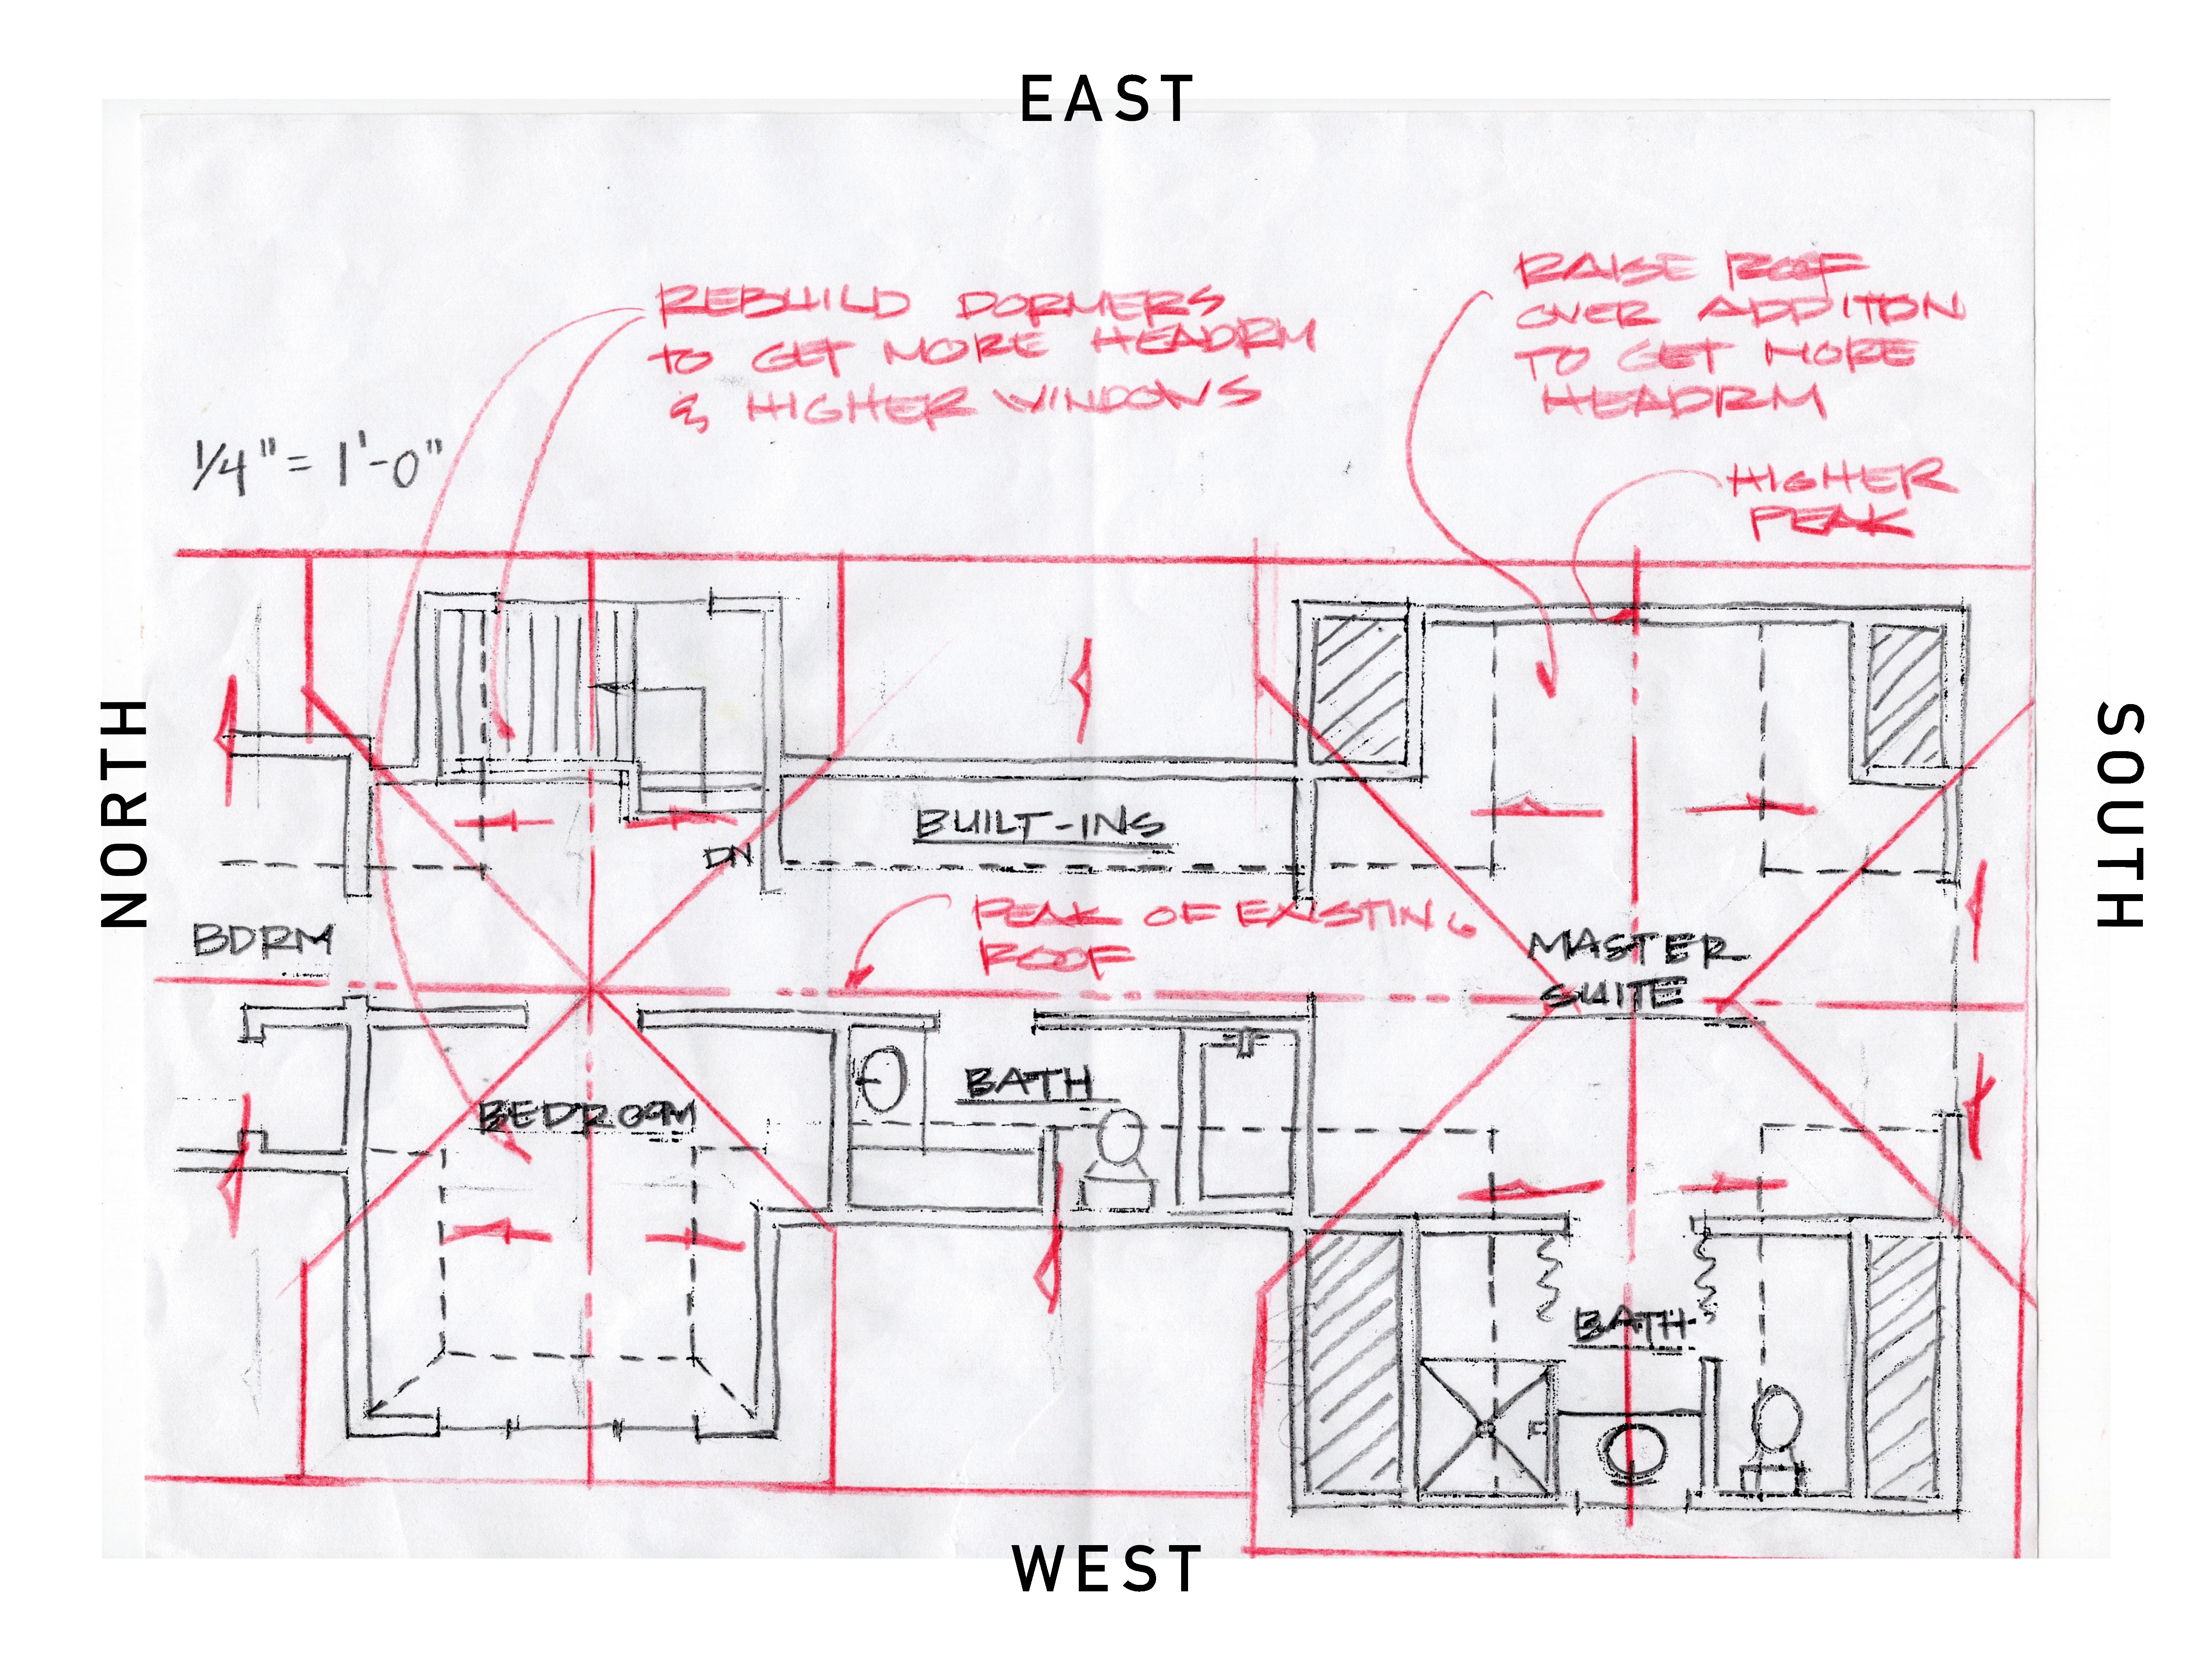 EAST
REBUILD DORMERS
to GET MORE HEADRM
& HIGHER WINDOWS
RAISE ROOF
OVER ADDITION
TO GET MORE
HEADRM
HIGHER
PEAK
1/4" = 1'-0"
NORTH
SOUTH
BUILT-INS
DN
BDRM
PEAK OF EXISTING
ROOF
MASTER
SUITE
BEDROOM
BATH
BATH
WEST